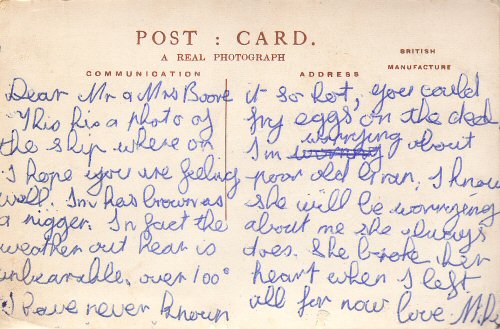 POST : CARD.
A REAL PHOTOGRAPH
BRITISH
MANUFACTURE
COMMUNICATION
ADDRESS
Dear Mr & Mrs Boore
This his a photo of
the ship where on
I hope you are feeling
well. Im has brown as
a nigger. In fact the
weather out hear is
unbearable, over 100°
I have never known
it so hot, you could
fry eggs on the deck
Im worrying about
poor old Gran, I know
she will be worrying
about me she always
does. She broke her
heart when I left
all for now love